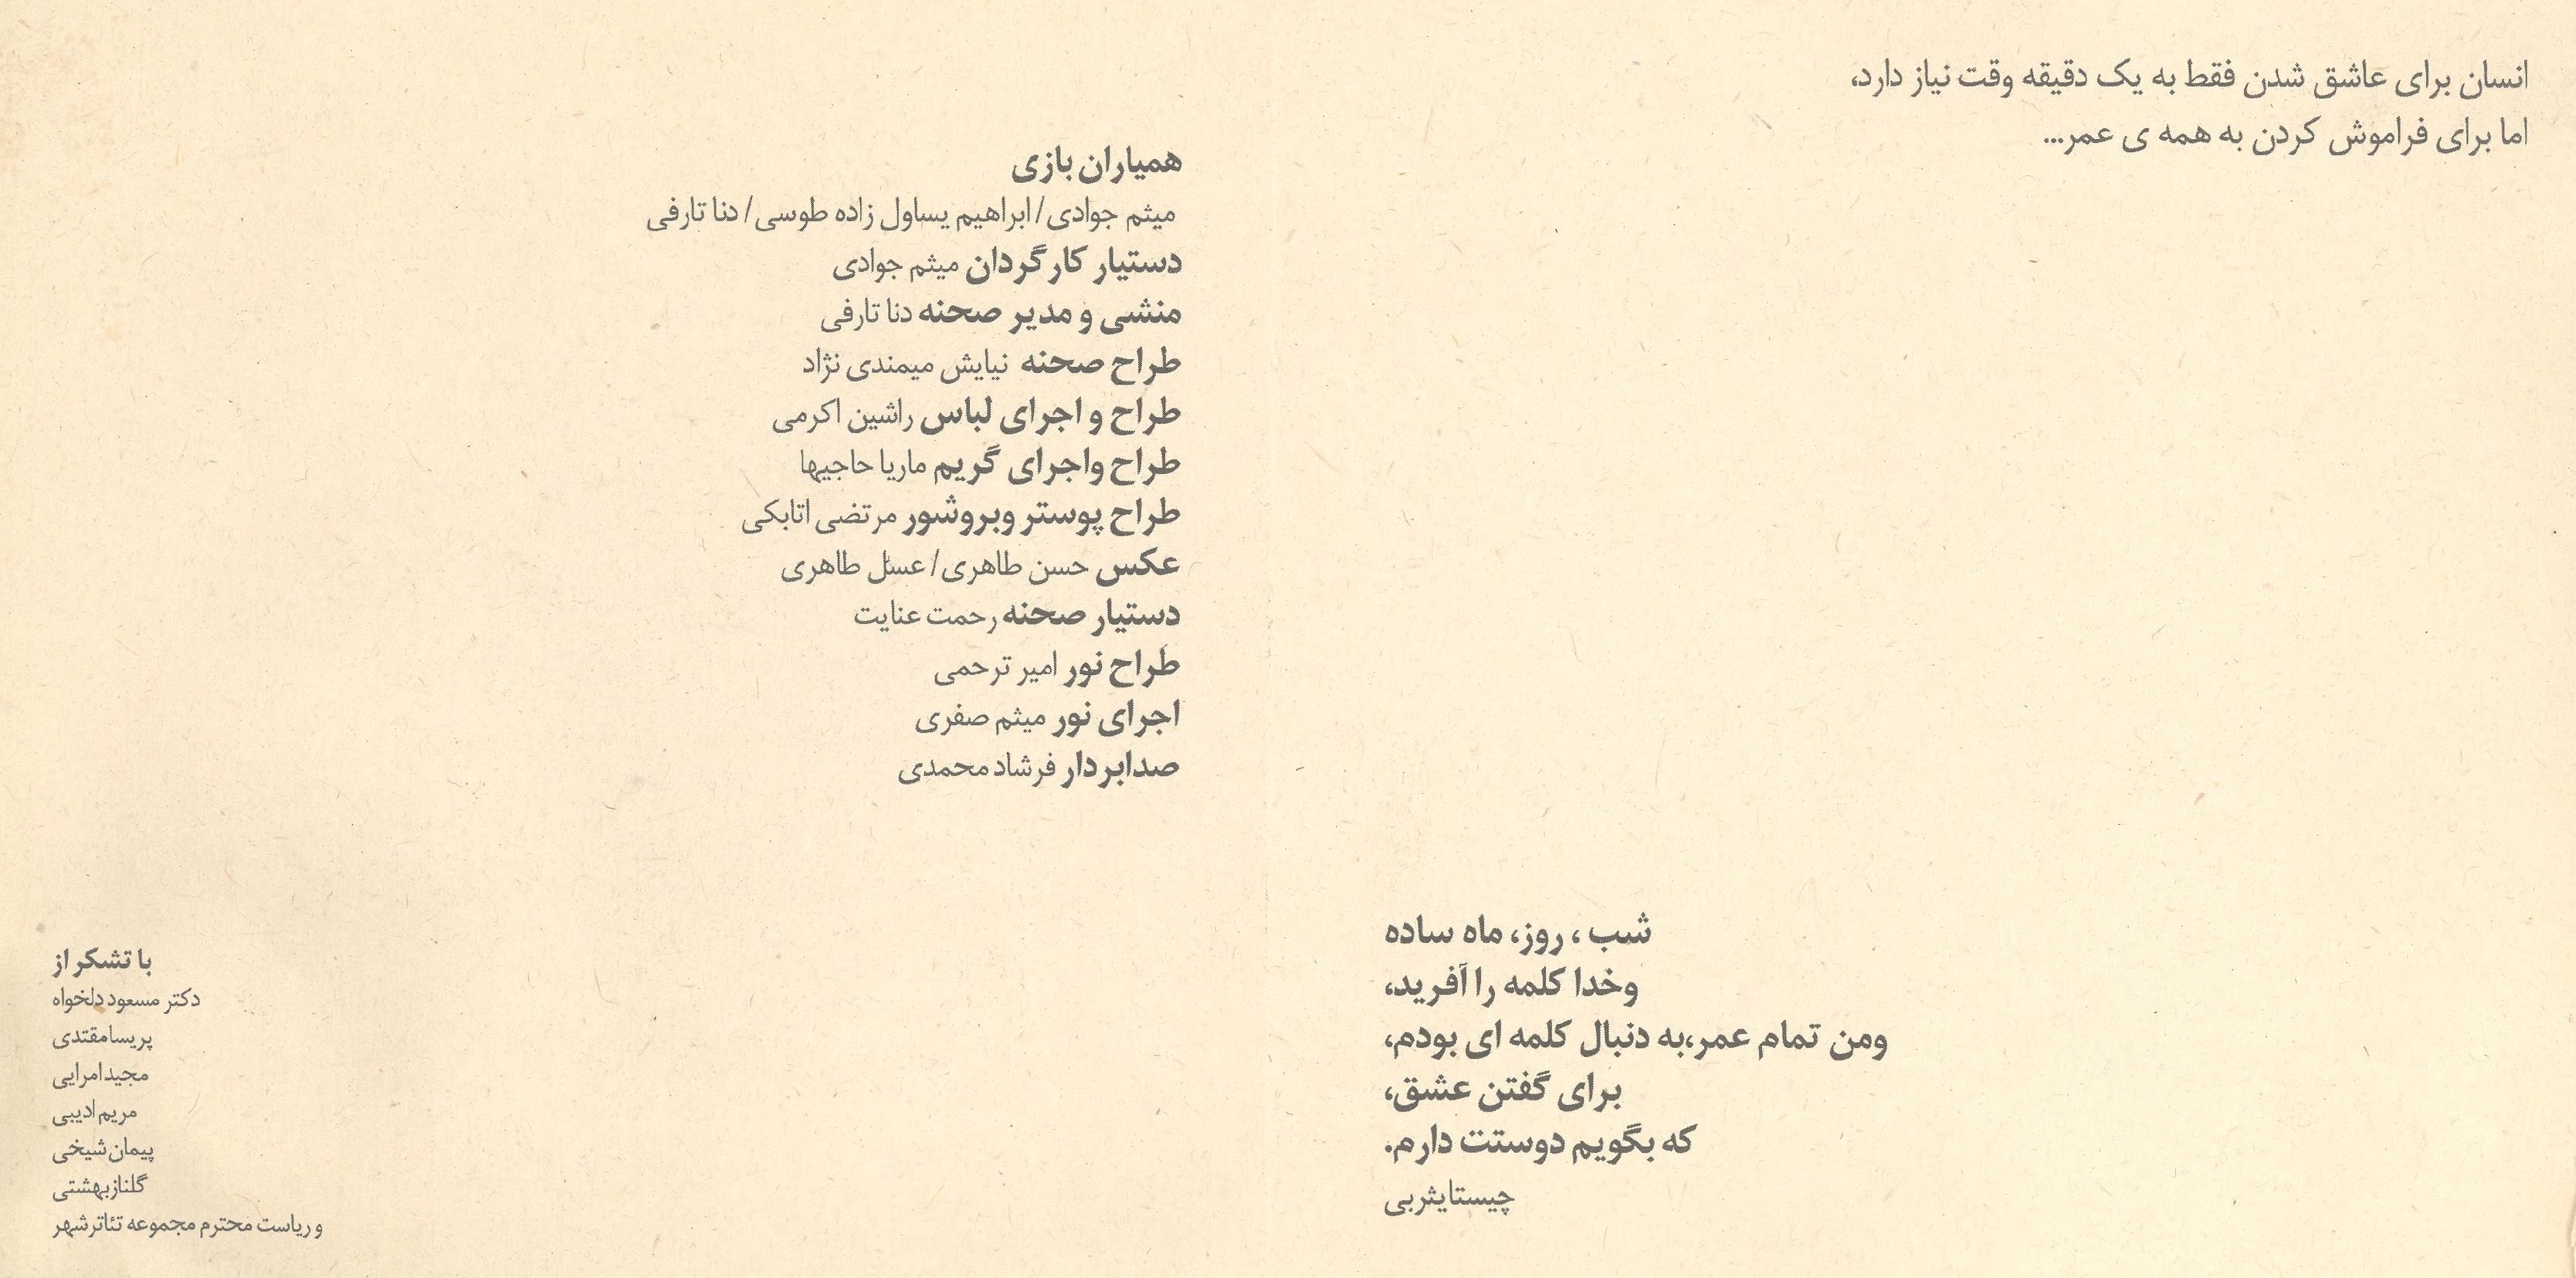 انسان برای عاشق شدن فقط به یک دقیقه وقت نیاز دارد،
اما برای فراموش کردن به همه ی عمر...
شب ، روز، ماه ساده
وخدا کلمه را آفرید،
ومن تمام عمر،به دنبال کلمه ای بودم،
برای گفتن عشق،
که بگویم دوستت دارم.
چیستایثربی
همیاران بازی
میثم جوادی/ ابراهیم یساول زاده طوسی/ دنا تارفی
دستیار کارگردان میثم جوادی
منشی و مدیر صحنه دنا تارفی
طراح صحنه نیایش میمندی نژاد
طراح و اجرای لباس راشین اکرمی
طراح واجرای گریم ماریا حاجیها
طراح پوستر وبروشور مرتضی اتابکی
عکس حسن طاهری/ عسل طاهری
دستیار صحنه رحمت عنایت
طراح نور امیر ترحمی
اجرای نور میثم صفری
صدابردار فرشاد محمدی
با تشکر از
دکتر مسعود دلخواه
پریسامقتدی
مجیدامرایی
مریم ادیبی
پیمان شیخی
گلنازبهشتی
و ریاست محترم مجموعه تئاترشهر